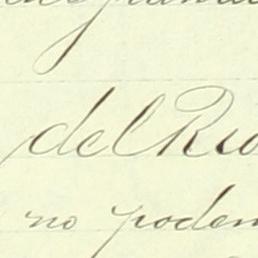 del Rio
no podem